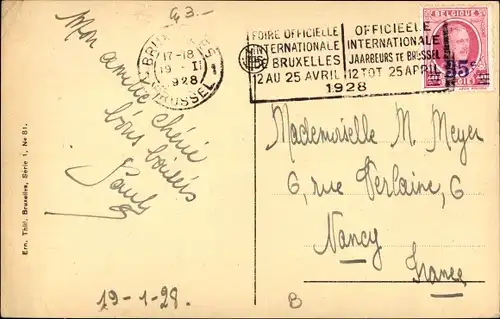 G3.-
BRUXELLES
17-18
19 - I
1928
BRUSSEL
1
FOIRE OFFICIELLE
INTERNATIONALE
DE BRUXELLES
12 AU 25 AVRIL
OFFICIEELE
INTERNATIONALE
JAARBEURS TE BRUSSEL
12 TOT 25 APRIL
1928
BELGIQUE
35c
Mon
amitié chérie
bons baisers
Paul
Mademoiselle M. Meyer
6, rue Verlaine, 6
Nancy
France
19-1-28.
B
Ern. Thill, Bruxelles, Série 1, No 81.